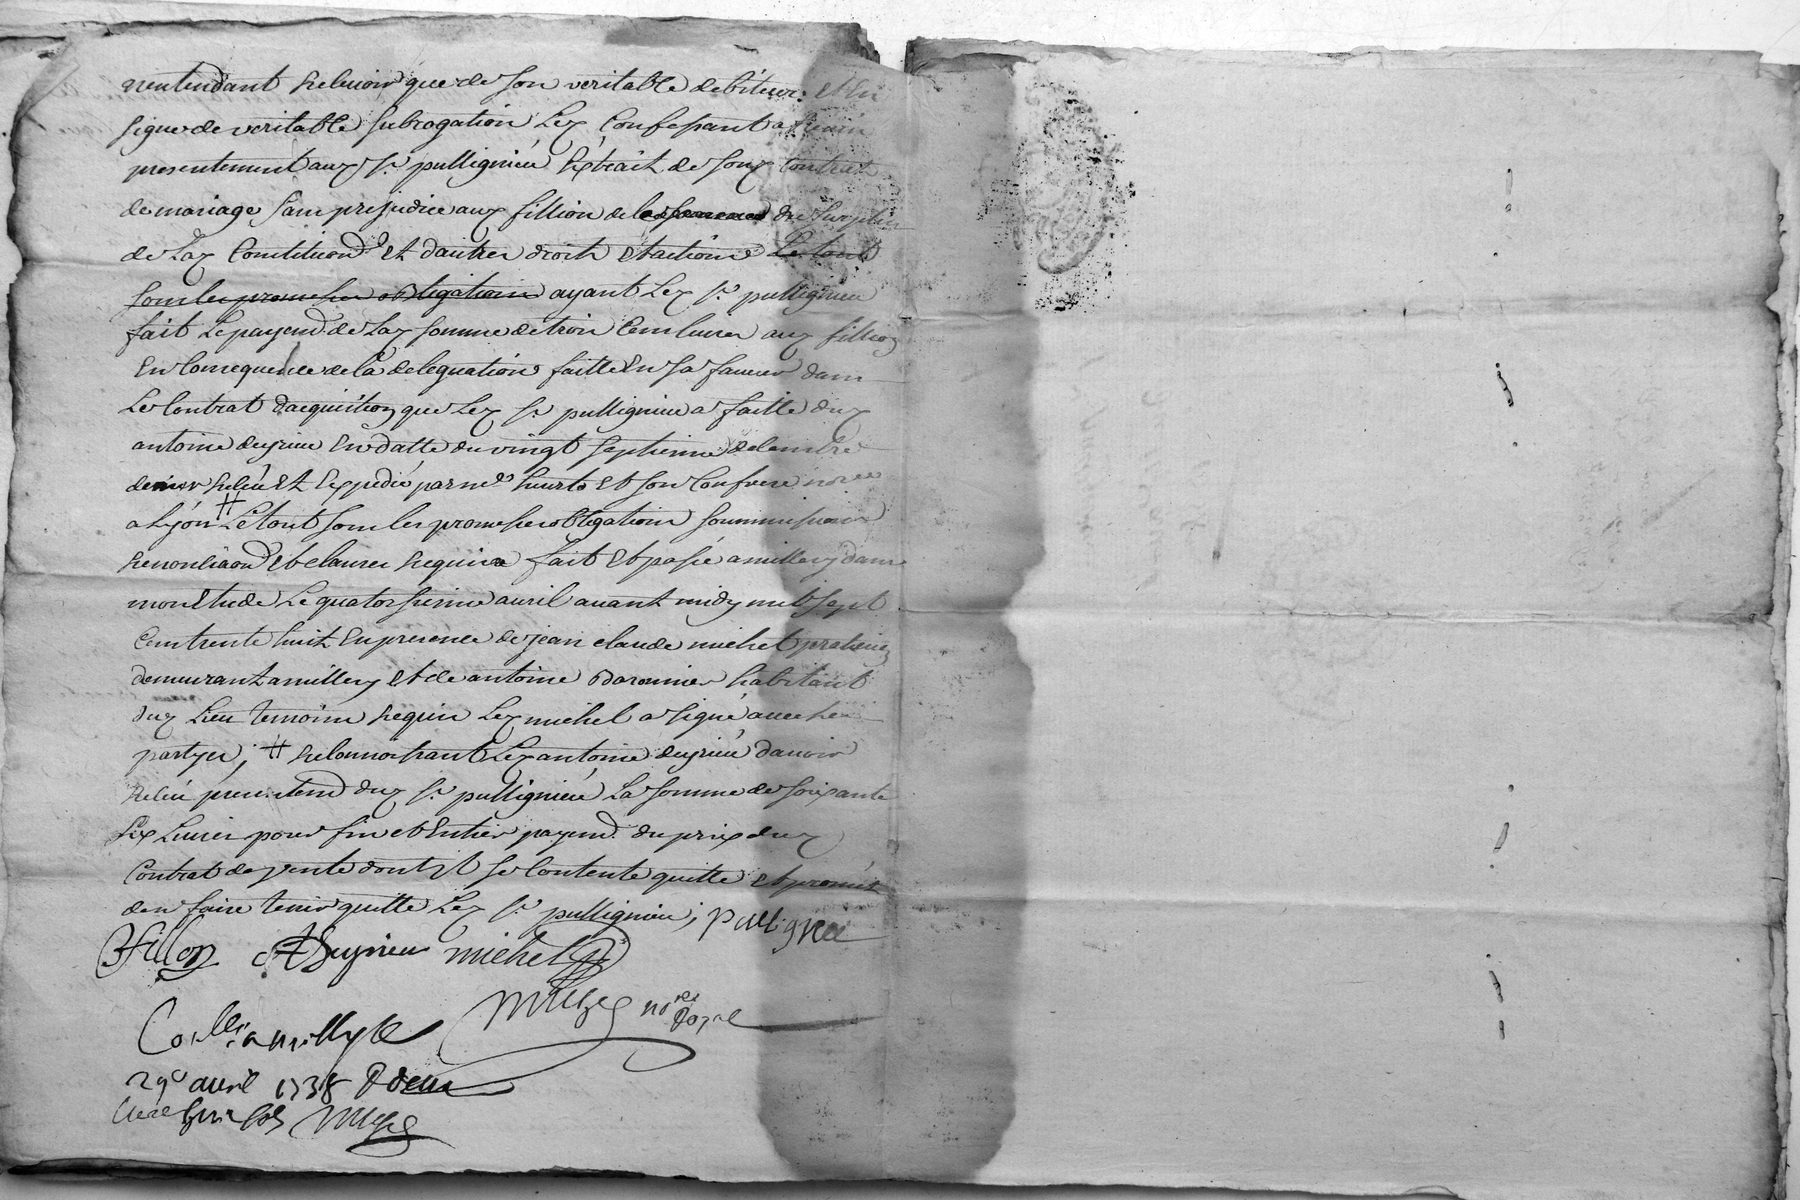 nentendant recherir que de son veritable debiteur. Et en
signe de veritable subrogation Led confessant a
presentement aud Sr. pullignieu Extrait de sond contrat
de mariage sans prejudice aud fillion de du surplus
de Lad Constituon Et dautres droits et actions Le tout
sous les promesses obligations ayant Led Sr. pullignieu
fait Le payemt de Lad somme de trois Cens livres aud fillion
En Consequence de la deleguation faitte En sa faveur dans
Le Contrat dacquisition que Led Sr. pullignieu a faitte dud
antoine deyrieu En datte du vingt septieme decembre
dernier receu Et Expedié par me et son Confrere nores
a Lyon # Le tout sous les promesses obligations soummissions
renonciaon et clauses requises fait Et passé a millery dans
mon Etude Le quatorsieme avril avant midy mil sept
Cens trente huit En presence de jean claude michel praticien
demeurant a millery et de antoine Baronnier habitant
dud Lieu temoins requis Led michel a signé avec les
partyes; # reconnoissant Led antoine deyrieu davoir
receu presentemt dud Sr. pullignieu La somme de soixante
six Livres pour fin et Entier payemt. du prix dud
Contrat de vente dont il se Contente quitte et promet
den faire tenir quitte Led Sr. pullignieu; pulligneu
fillon A Deyrieu michel
nore Royal
Conllé a millery le
29e avril 1738 R